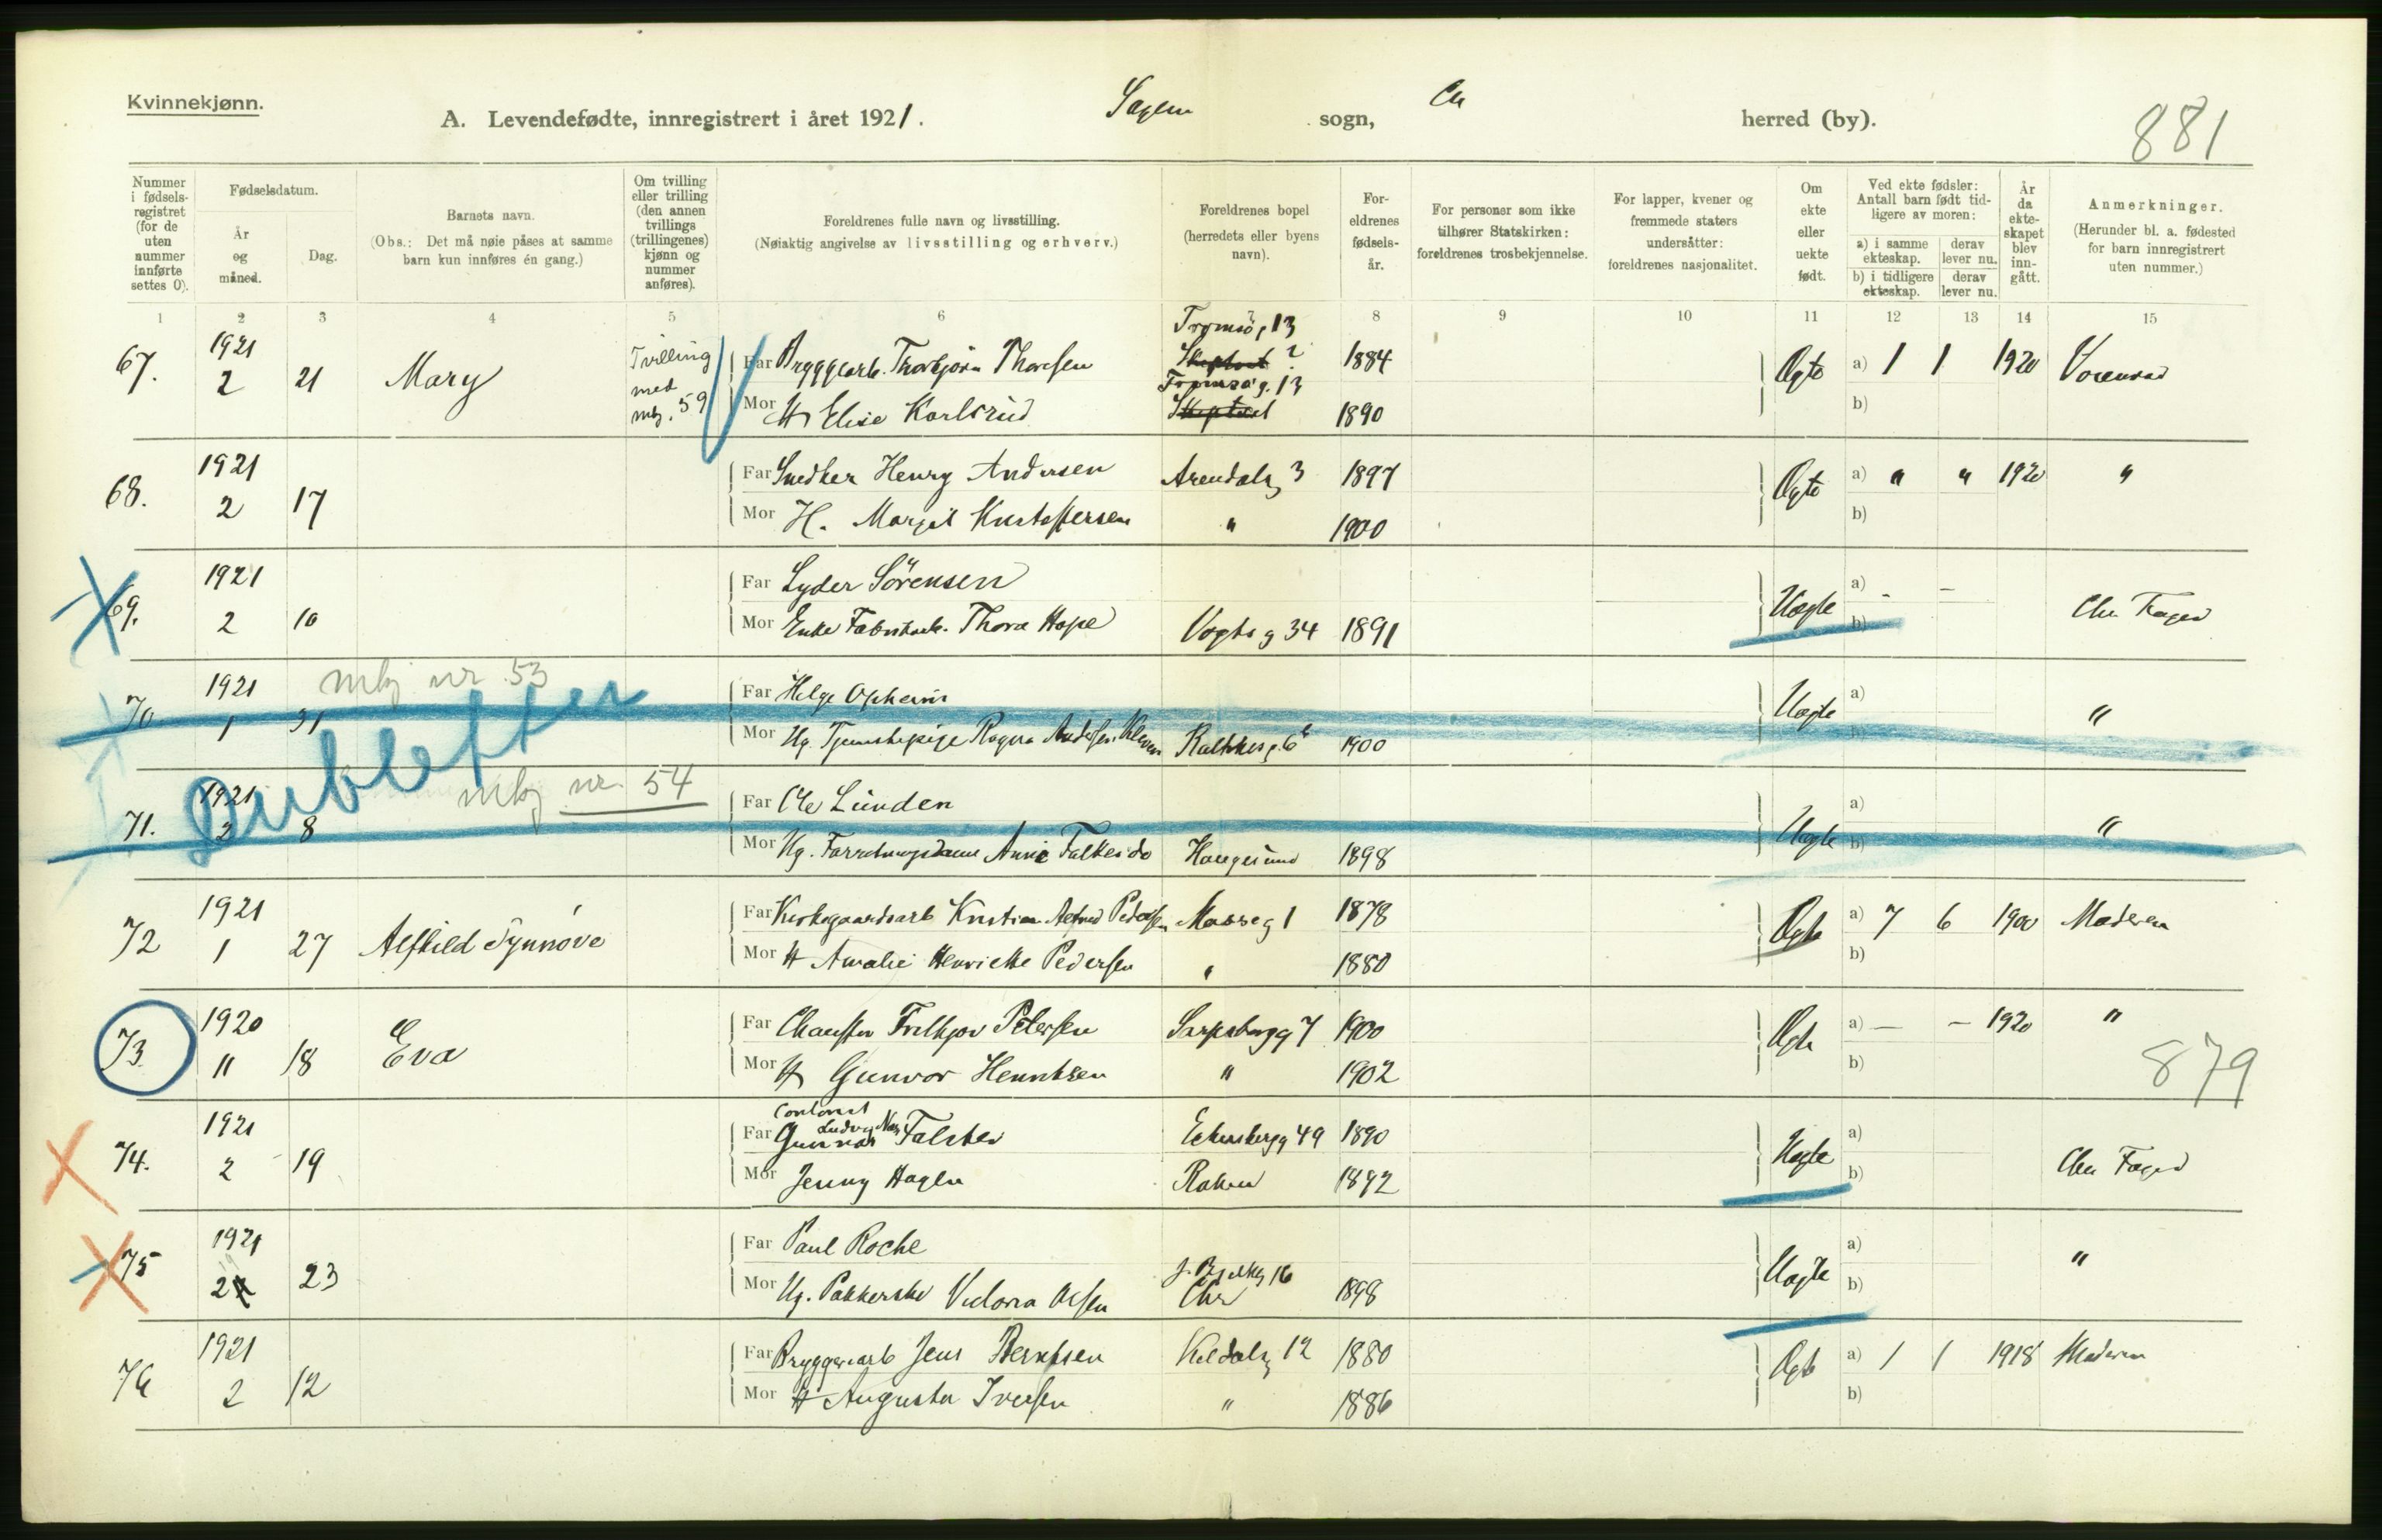 Kvinnekjønn.
A. Levendefødte, innregistrert i året 1921. Sagene sogn, Chr herred (by).
881
Nummer i fødsels-registret (for de uten nummer innførte settes 0).
Fødselsdatum.
År og måned.
Dag.
Barnets navn.
(Obs.: Det må nøie påses at samme barn kun innføres én gang.)
Om tvilling eller trilling (den annen tvillings (trillingenes) kjønn og nummer anføres).
Foreldrenes fulle navn og livsstilling.
(Nøiaktig angivelse av livsstilling og erhverv.)
Foreldrenes bopel (herredets eller byens navn).
For-eldrenes fødsels-år.
For personer som ikke tilhører Statskirken: foreldrenes trosbekjennelse.
For lapper, kvener og fremmede staters undersåtter: foreldrenes nasjonalitet.
Om ekte eller uekte født.
Ved ekte fødsler: Antall barn født tid-ligere av moren:
a) i samme ekteskap.
derav lever nu.
b) i tidligere ekteskap.
derav lever nu.
År da ekte-skapet blev inn-gått.
Anmerkninger.
(Herunder bl. a. fødested for barn innregistrert uten nummer.)
1 2 3 4 5 6 8 9 10 11 12 13 14 15
67. 1921 2 21 Mary Tvilling med mkj. 59
Far Bryggearb. Thorbjörn Thoresen Tromsög 13 1884 Ægte a) 1 1 1920
Mor H Elise Karlsrud Tromsög. 13 1890 b)
68. 1921 2 17
Far Snedker Henry Andersen Arendalsg 3 1897 Ægte a) " " 1920 "
Mor H. Margit Kristoffersen " 1900 b)
69. 1921 2 10
Far Lyder Sörensen Uægte a) - -
Mor Enke Fabrikarb. Thora Hope Vogtsg 34 1891 b)
mkj nr. 53
70. 1921 1 31
Far Helge Opheim Uægte a) "
Mor Ug. Tjenestepige Ragna Andersen 1900
Dubletter
mkj nr. 54
71. 1921 2 8
Far Ole Lunden Uægte a) "
Mor Ug. Haugesund 1898 b)
72 1921 1 27 Alfhild Synnöve
Far Kirkegaardsarb Kristian Alfred Pedersen Mosseg 1 1878 Ægte a) 7 6 1900 Moderen
Mor H Amalie Henriette Pedersen " 1880 b)
73. 1920 11 18 Eva
Far Chauffør Fridtjov Petersen Sarpsborgg 7 1900 Ægte a) — – 1920 "
Mor H Gunvor Henriksen " 1902 b)
879
74. 1921 2 19
Far Contorist Gunnar Ludvig Falster Eckersbergg 49 1890 Uægte a)
Mor Jenny Hagen 1892 b)
75 1921 2 23
Far Paul Roche Uægte a) "
Mor Ug. Pakkerske Victoria Olsen Chr 1898 b)
76 1921 2 12
Far Bryggeriarb Jens Berntsen 12 1880 Ægte a) 1 1 1918 Moderen
Mor H Augusta Iversen " 1886 b)